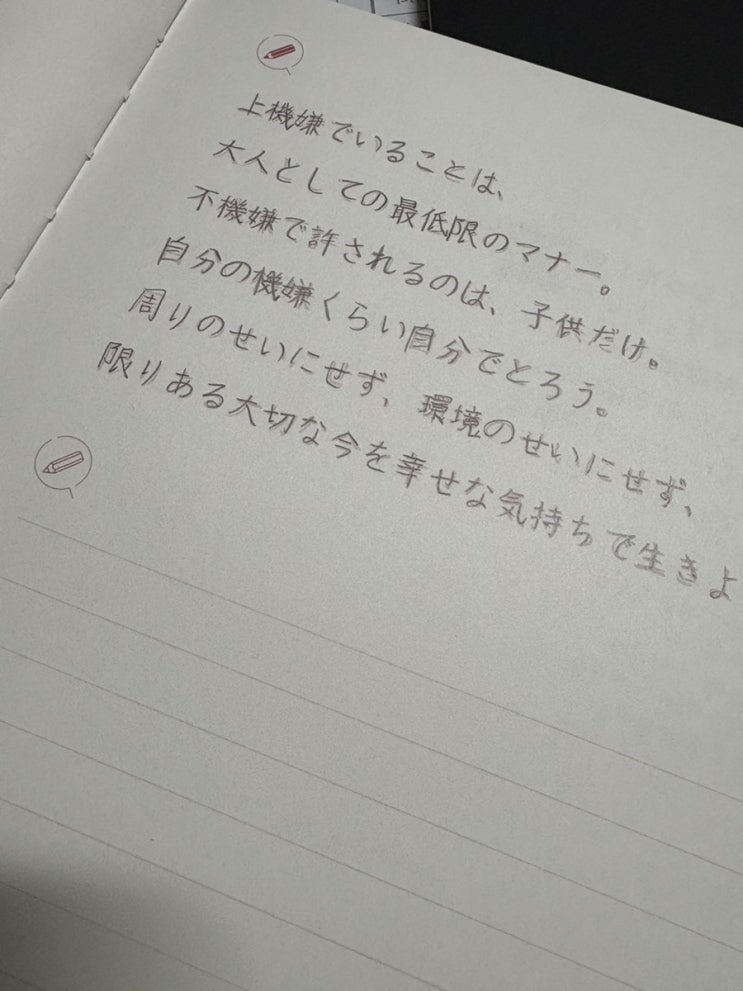 上機嫌でいることは、
大人としての最低限のマナー。
不機嫌で許されるのは、子供だけ。
自分の機嫌くらい自分でとろう。
周りのせいにせず、環境のせいにせず、
限りある大切な今を幸せな気持ちで生きよ